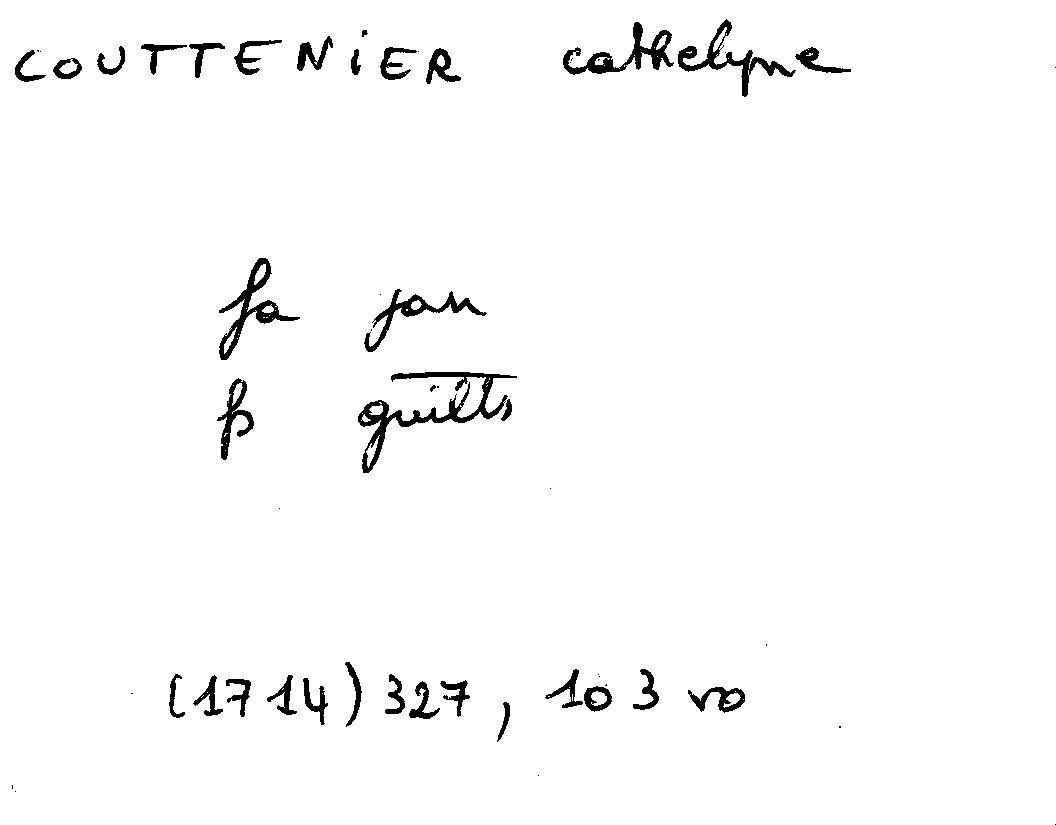 COUTTENiER cathelyne
fa jan
fs guillts
(1714) 327, 103 vo